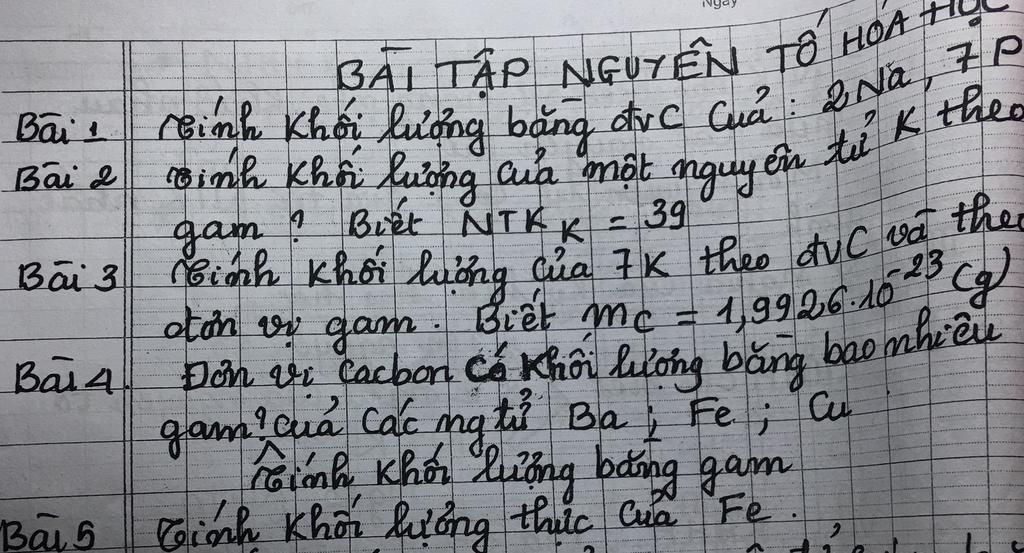 Ngày
BÀI TẬP NGUYÊN TỐ HÓA HỌC
Bài 1 Tính khối lượng bằng đvC của: 2Na, 7P
Bài 2 Tính khối lượng của một nguyên tử K theo
gam? Biết NTK K = 39
Bài 3 Tính khối lượng của 7K theo đvC và theo
đơn vị gam. Biết mC = 1,9926.10⁻²³ (g)
Bài 4. Đơn vị Cacbon có khối lượng bằng bao nhiêu
gam? của các ng tử Ba; Fe; Cu
Tính khối lượng bằng gam
Bài 5 Tính khối lượng thực của Fe.